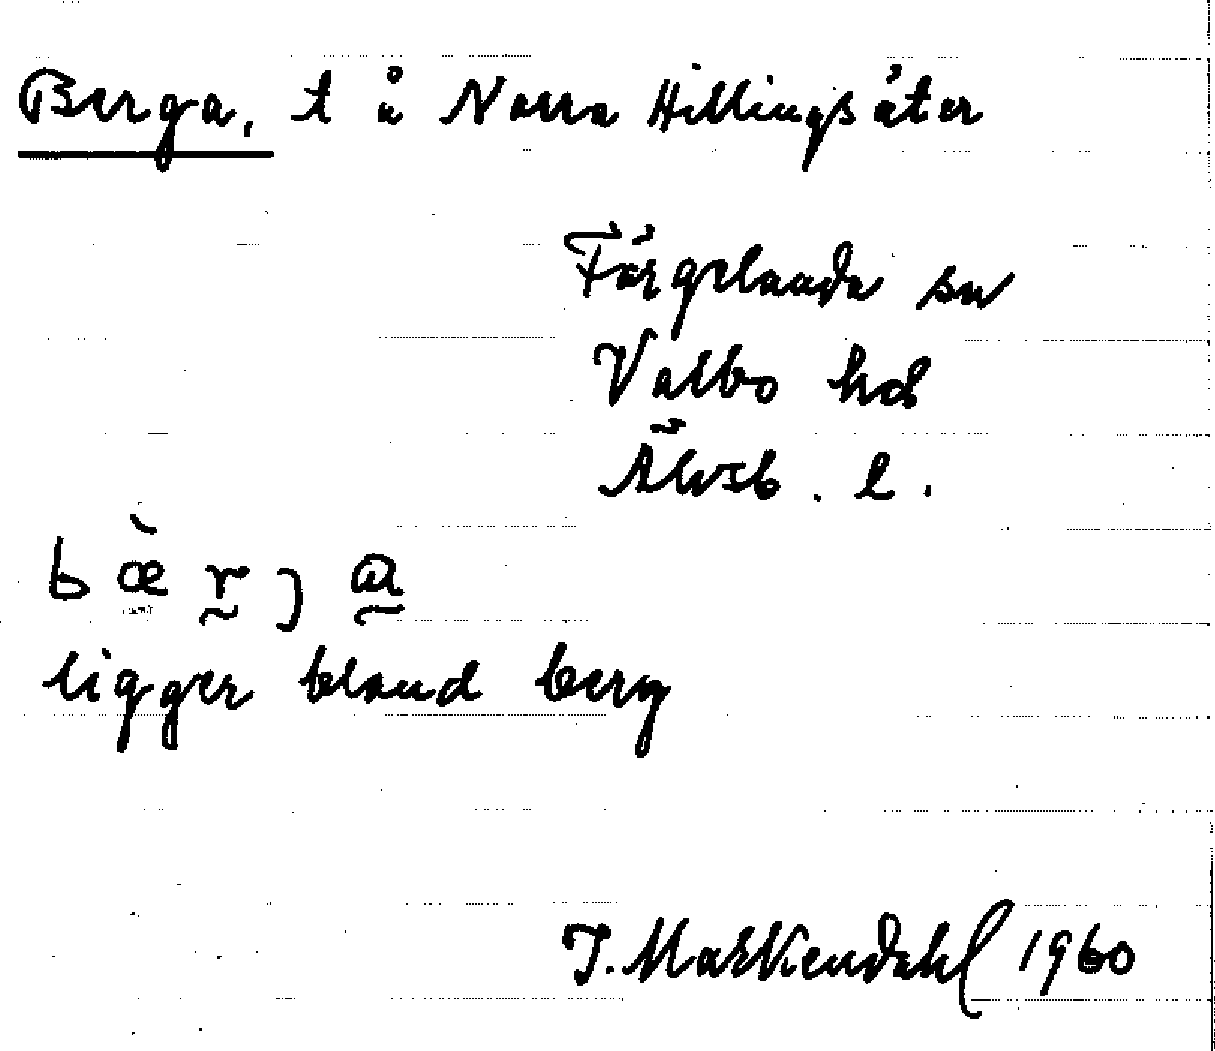 Berga, t å Norra Hillingsäter
Färgelanda sn
Valbo hd
Älvsb. l.
bæ̀rja
ligger bland berg
J. Markendahl 1960